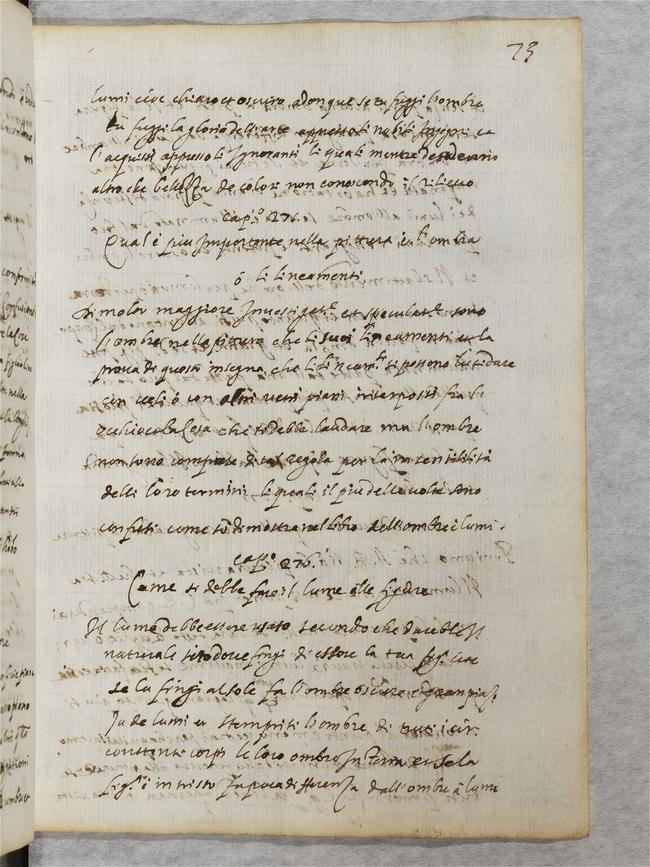 73
lumi cioe chiaro et oscuro adonque se tu fuggi l'ombre
tu fuggi la gloria dell'arte appresso li nobili Ingegni et
l'acquisti appresso li Ignoranti li quali mente desiderano
altro che bellezza de colori non conoscendo il rilievo
Cap.º 276.
Qual è piu Importante nella pittura o l'ombra
ó li lineamenti.
Di molto maggiore Investigat.e et speculat.e sono
l'ombre nella pittura che li suoi lineamenti et la
prova di questo insegna che li lineam.ti si possono lucidare
con veli ó con vetri piani interposti fra l'
occhio e la cosa che si debbe laudare ma l'ombre
non sono comprese di tal regola per la insensibilità
delli loro termini li quali il piu delle volte sono
confusi come si dimostra nel libro dell'ombre e lumi.
cap.º 276.
Come si debbe fare il lume alle figure
Il lume debbe essere usato secondo che darebbe Il
naturale sito dove fingi di essere la tua fig.ª cioe
se la fingi al sole fa l'ombre oscure e gran piaz
za de lumi et stampi l'ombre di tutti i cir
constanti corpi le loro ombre In terra et se la
fig.ª è in tristo fa poca differenza dall'ombre à lumi